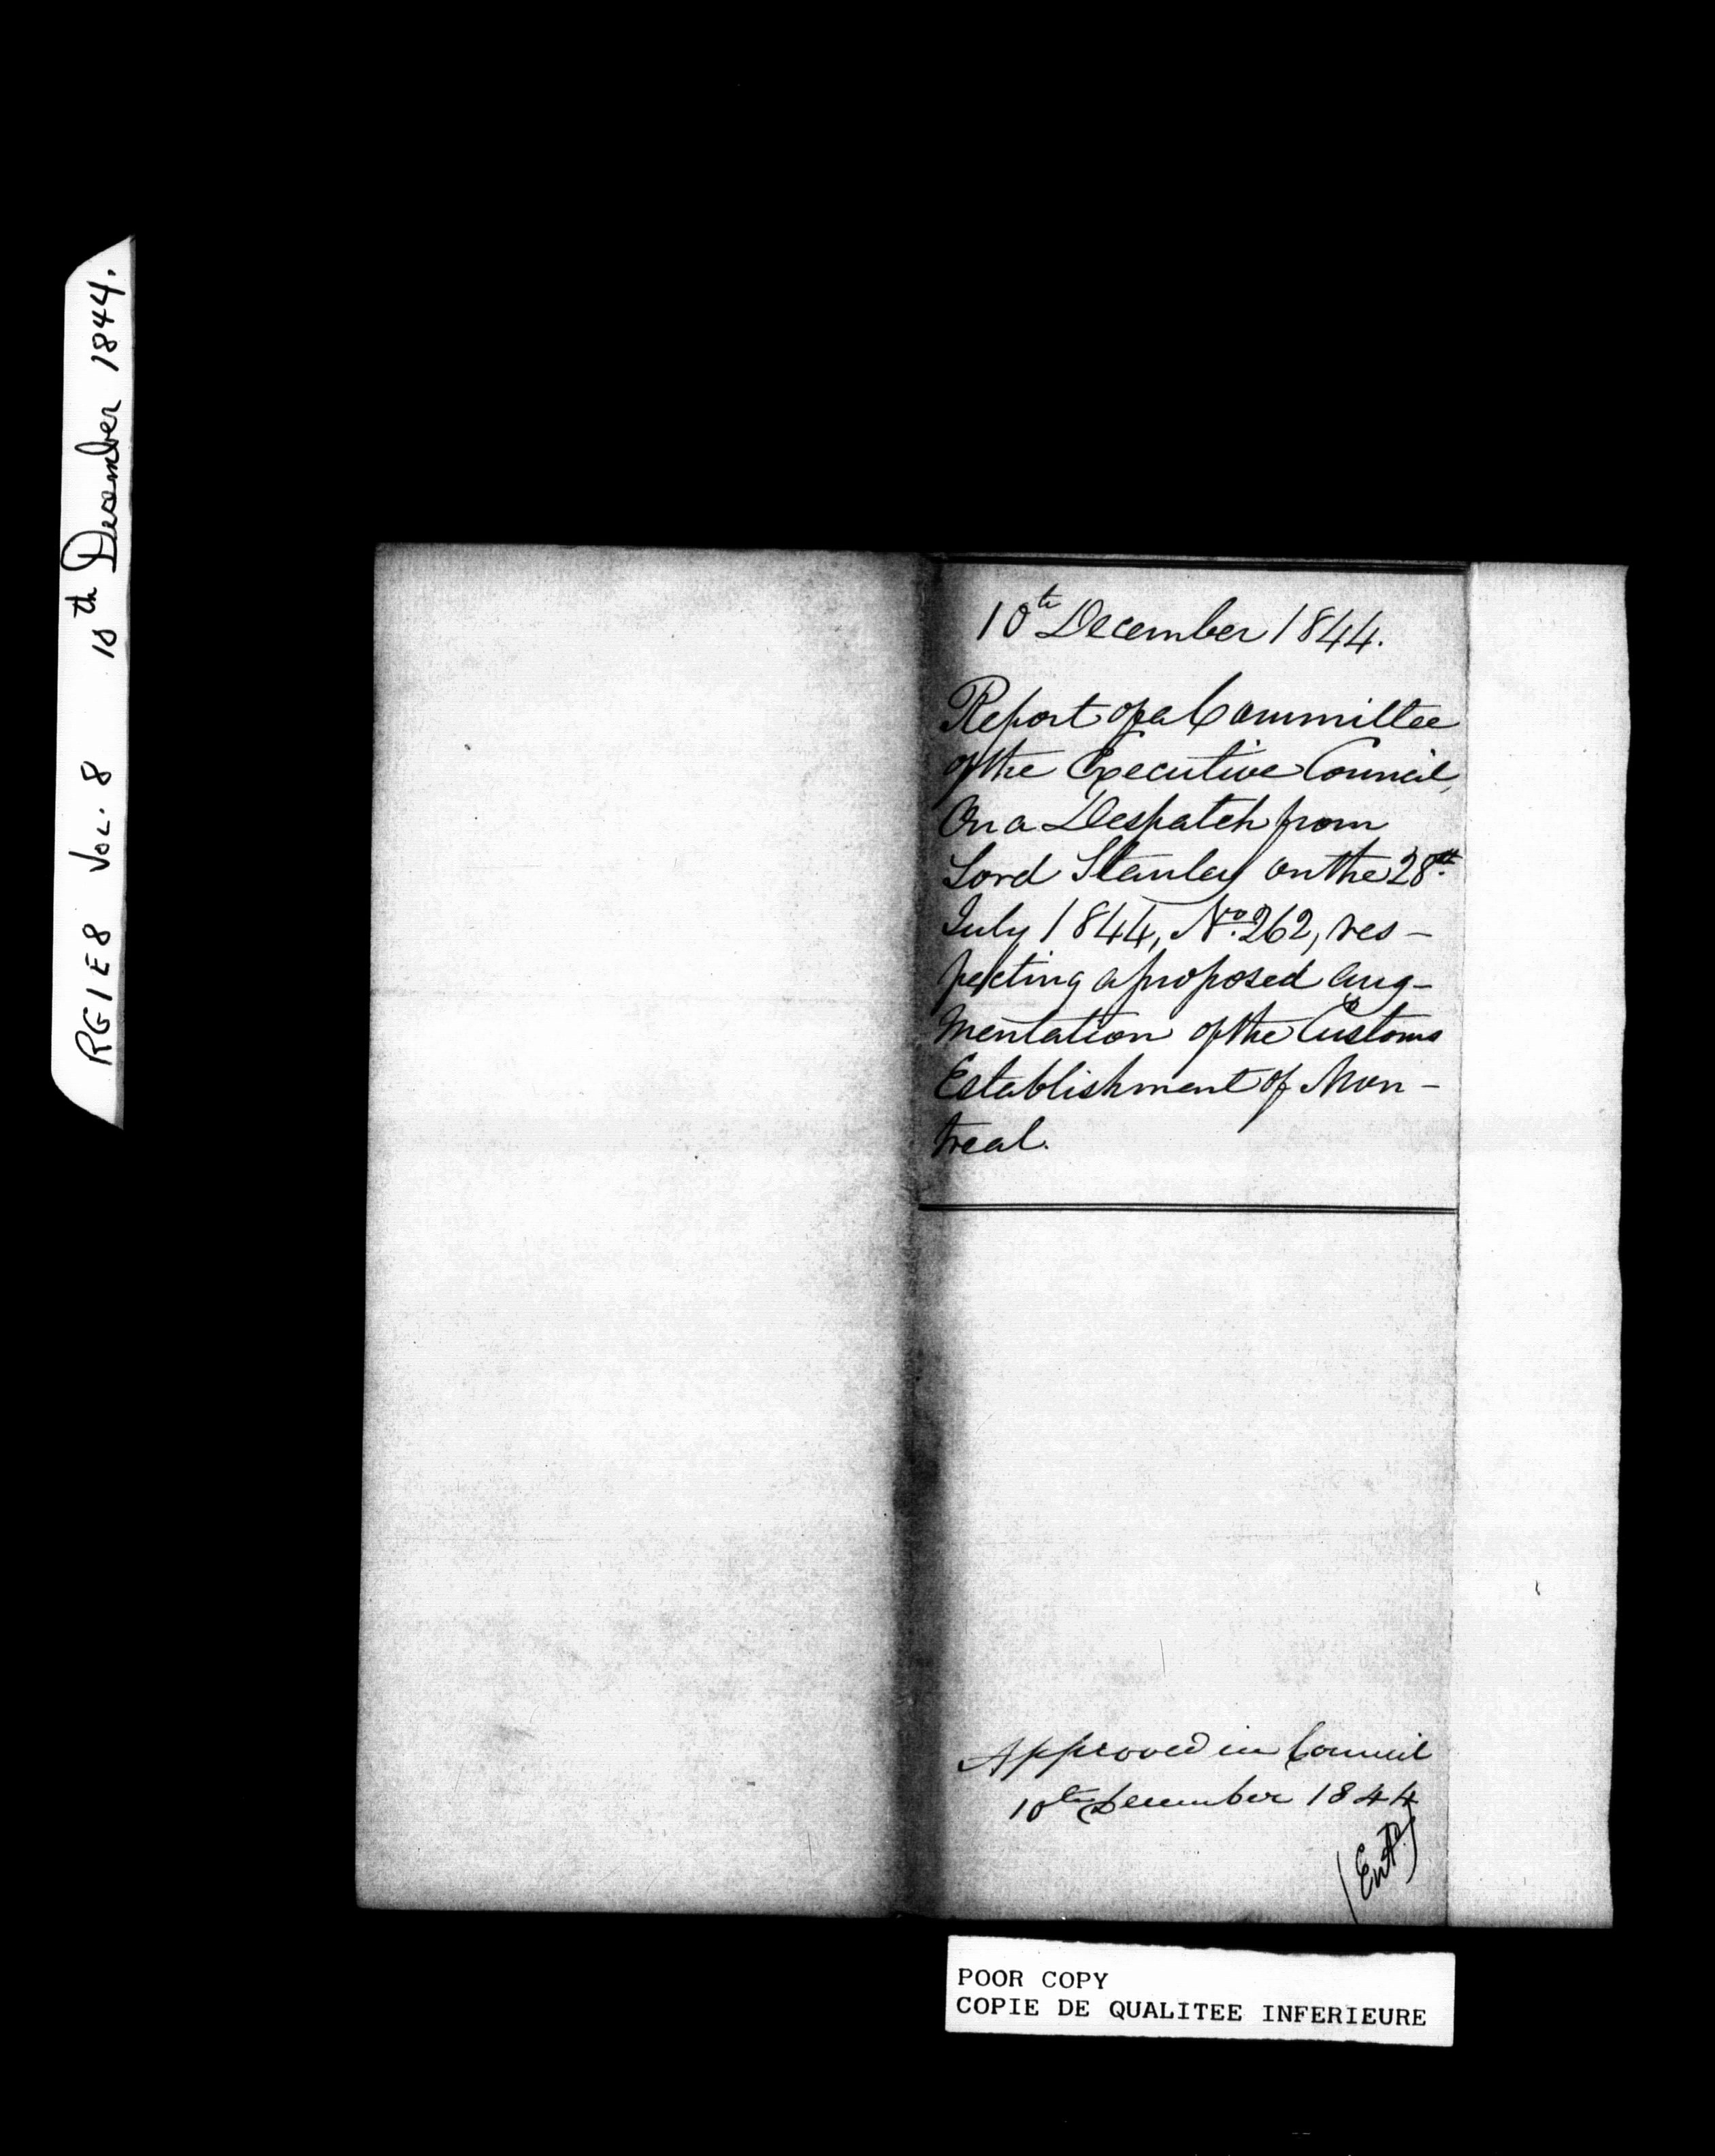 RG1 E8 VOL. 8 10th December 1844.
10th December 1844.
Report of a Committee
of the Executive Council,
On a Despatch from
Lord Stanley on the 28th
July 1844, No. 262, res-
pecting a proposed aug-
mentation of the Customs
Establishment of Mon-
treal.
Approved in Council
10th December 1844
(Entd)
POOR COPY
COPIE DE QUALITEE INFERIEURE